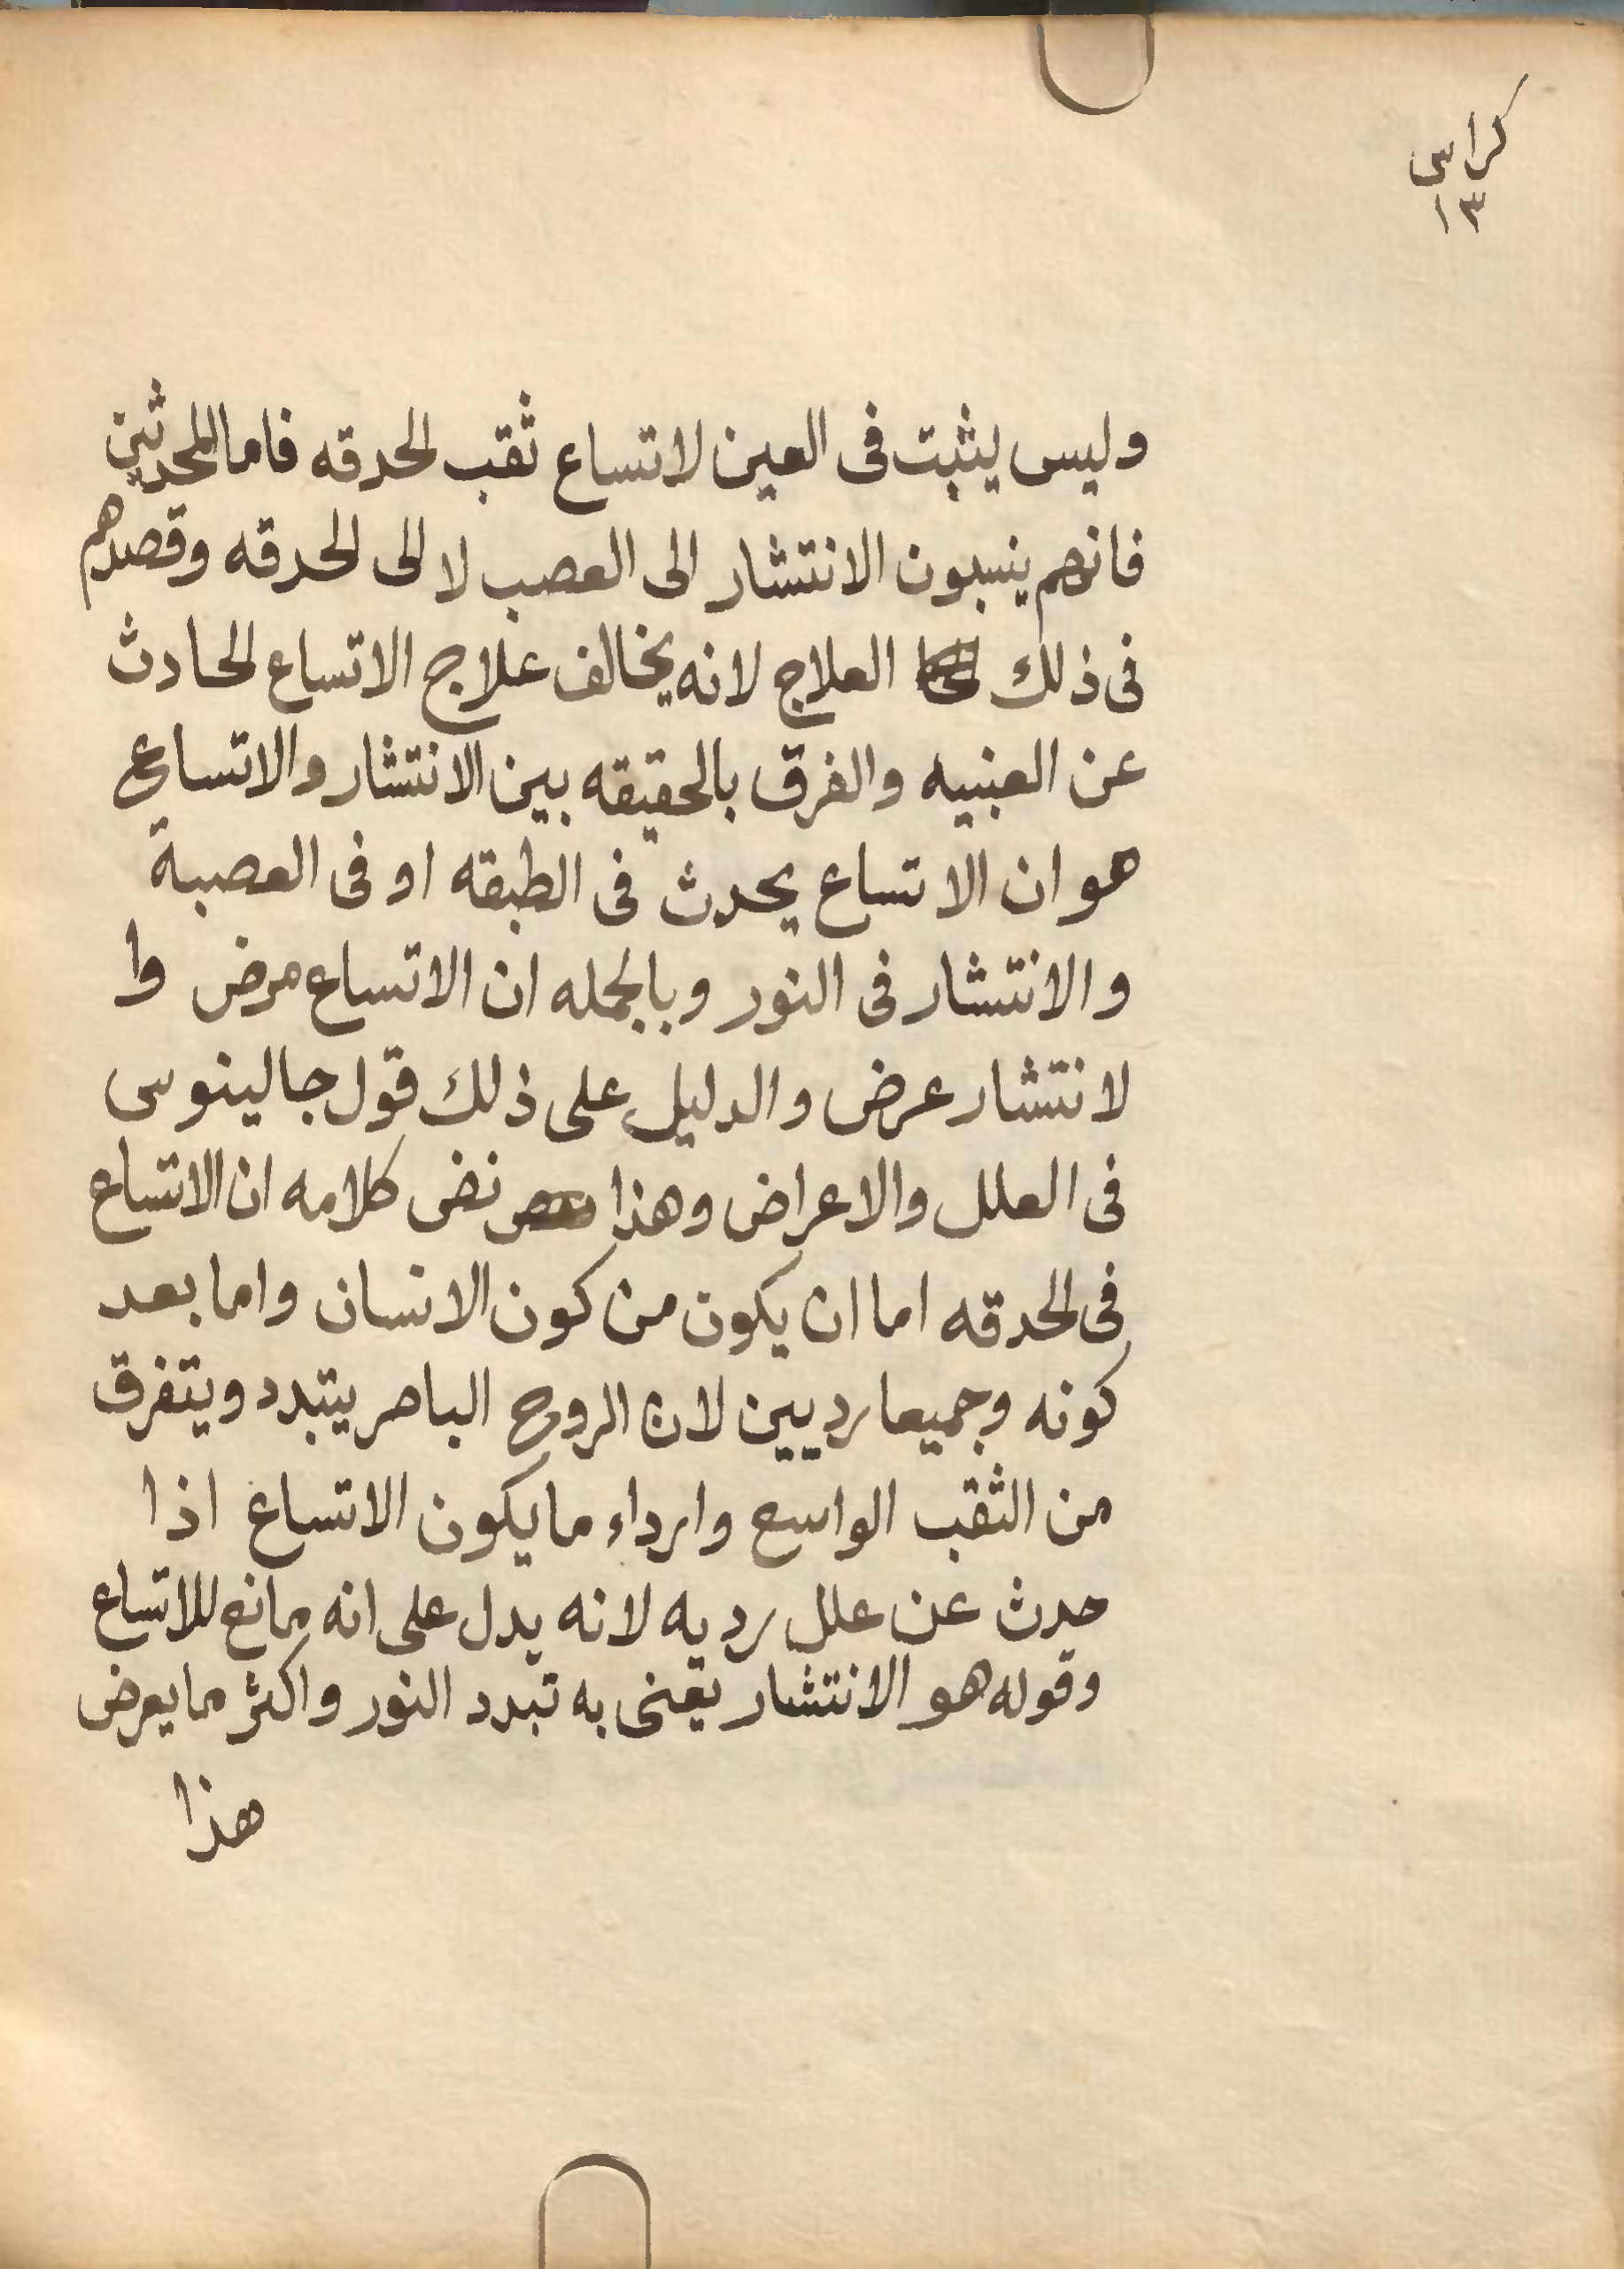 كراس
١٣
وليس يثبت فى العين لاتساع ثقب الحدقه فاما المحدثين
فانهم ينسبون الانتشار الى العصب لا الى الحدقه وقصدهم
فى ذلك العلاج لانه يخالف علاج الاتساع الحادث
عن العنبيه والفرق بالحقيقه بين الانتشار والاتساع
هو ان الاتساع يحدث فى الطبقه او فى العصبة
والانتشار فى النور وبالجمله ان الاتساع مرض وا
لانتشار عرض والدليل على ذلك قول جالينوس
فى العلل والاعراض وهذا نض كلامه ان الاتساع
فى الحدقه اما ان يكون من كون الانسان واما بعد
كونه وجميعا رديين لان الروح الباصر يتبدد ويتفرق
من الثقب الواسع وارداء ما يكون الاتساع اذا
حدث عن علل رديه لانه يدل على انه مانع للاتساع
وقوله هو الانتشار يعنى به تبدد النور واكثر ما يعرض
هذا